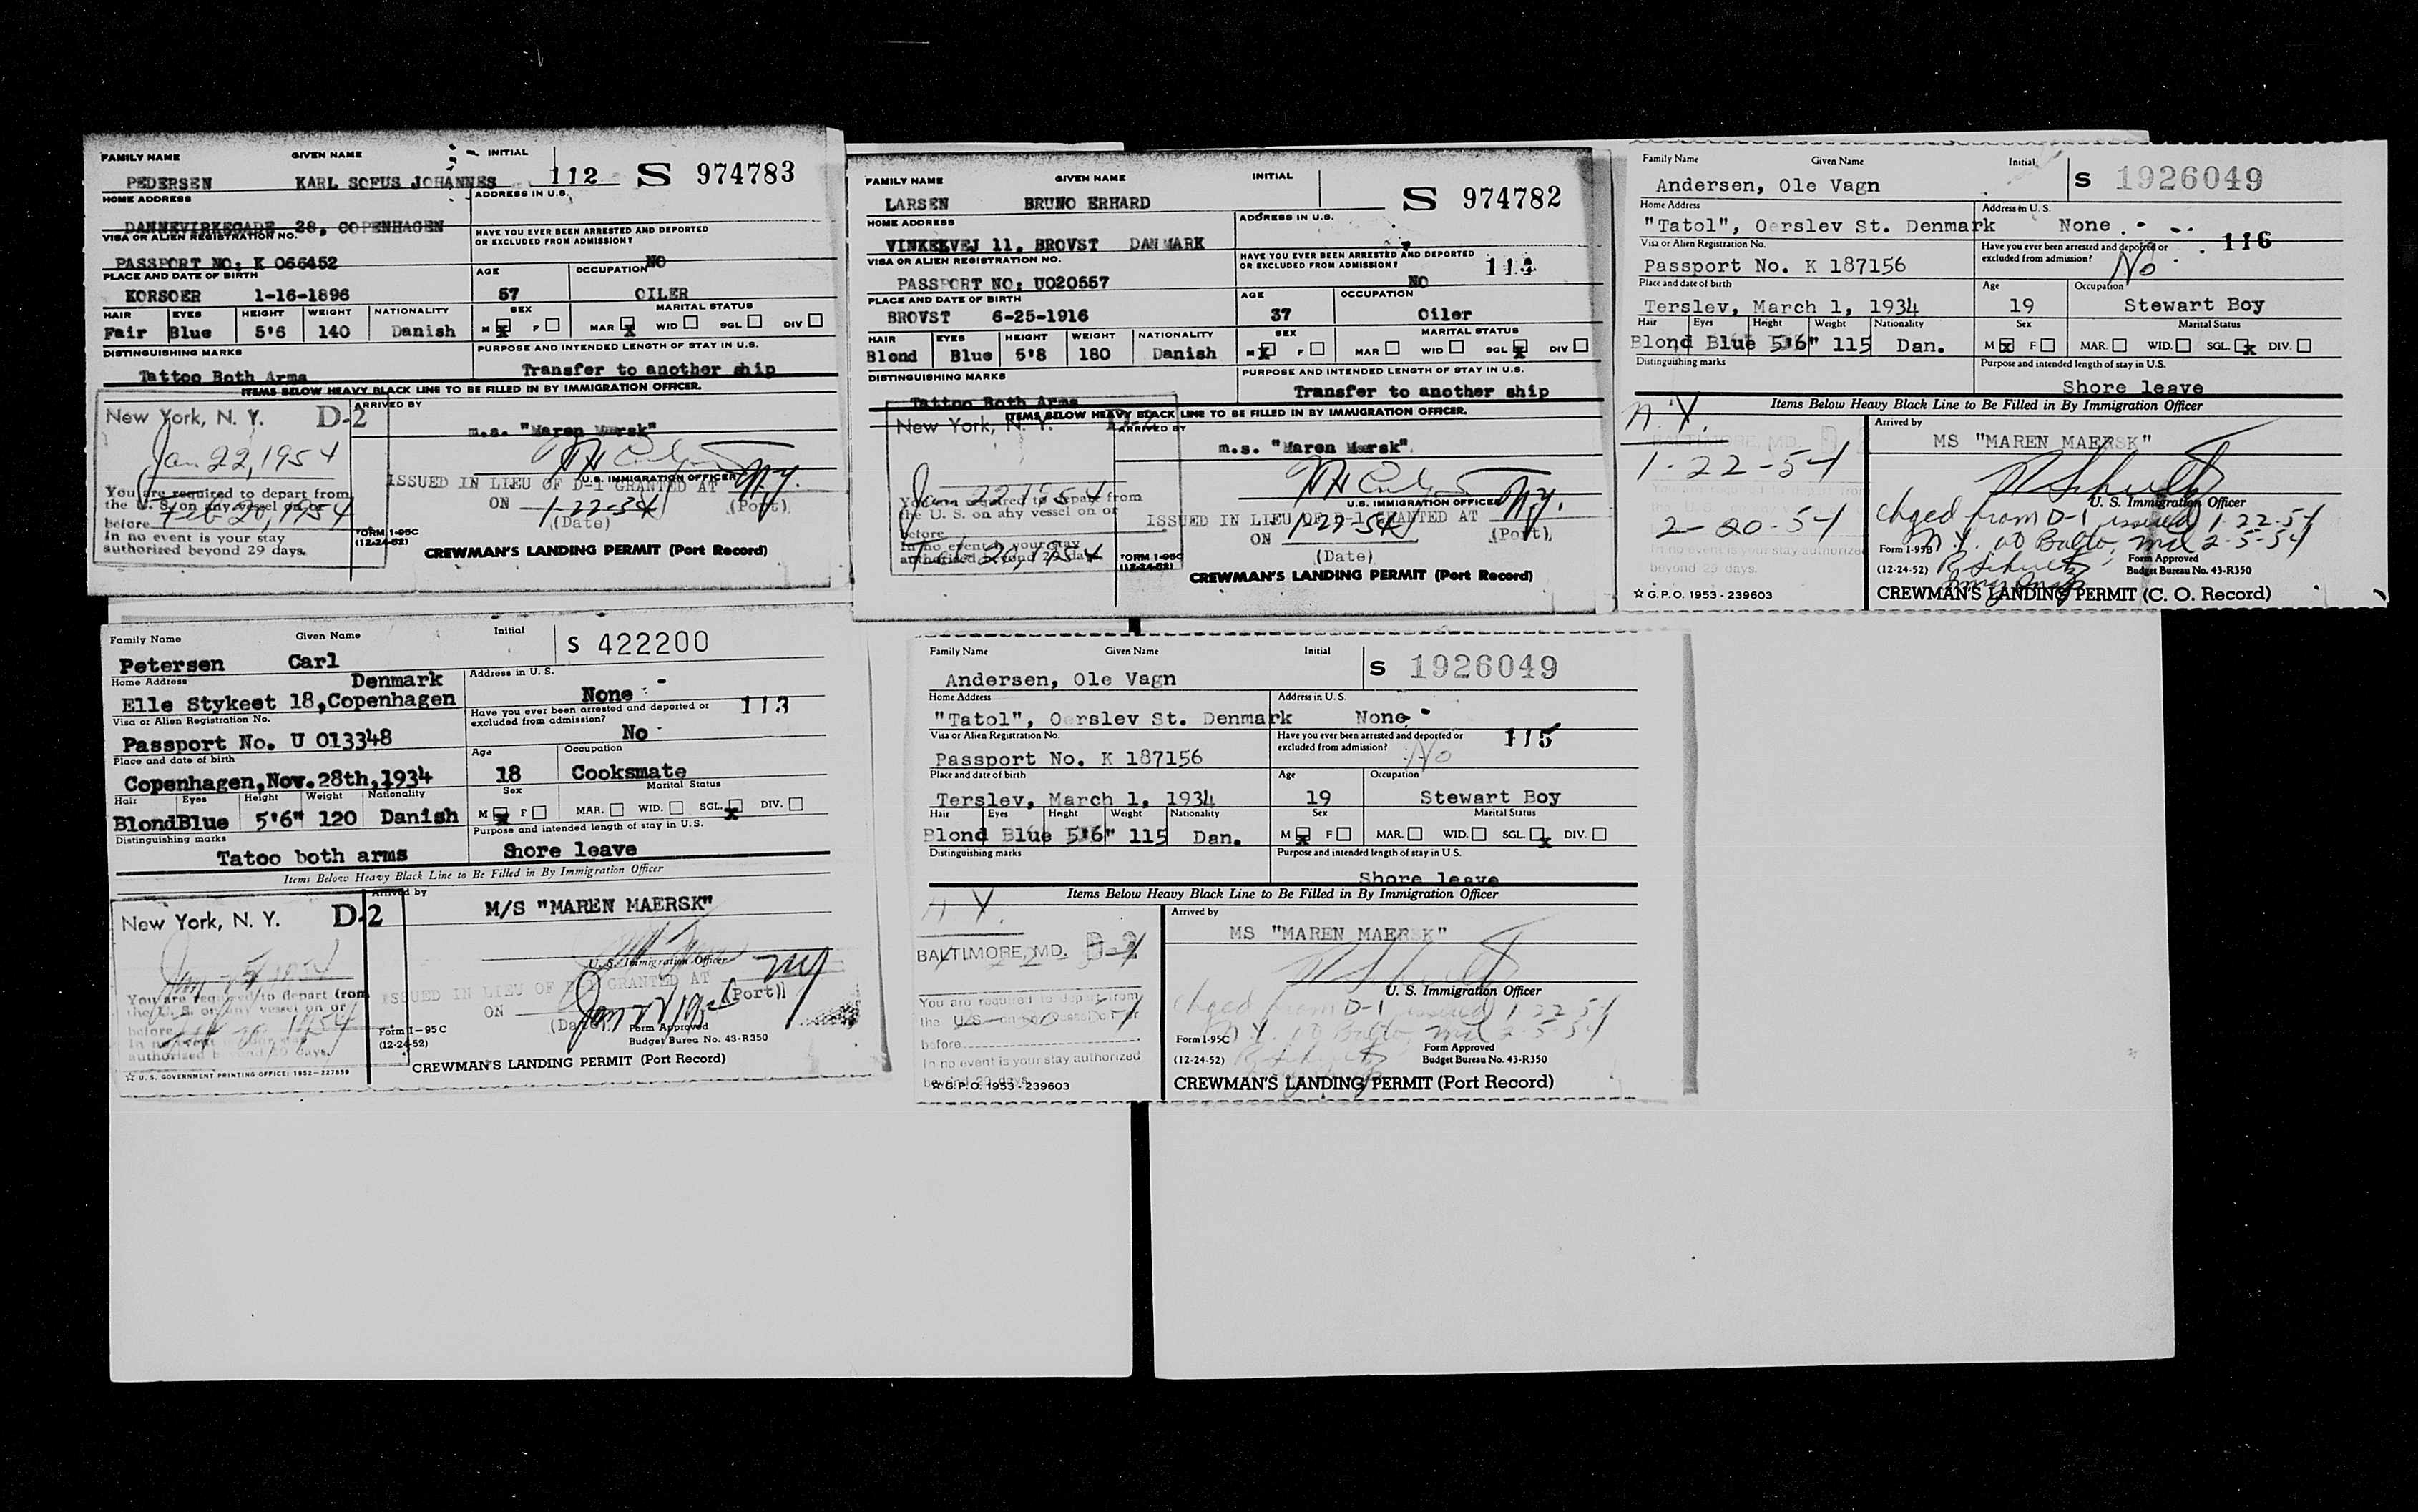 FAMILY NAME GIVEN NAME INITIAL
PEDERSEN KARL SOFUS JOHANNES 112 S 974783
HOME ADDRESS ADDRESS IN U.S.
DANNEVIRKEGADE 28, COPENHAGEN
VISA OR ALIEN REGISTRATION NO. HAVE YOU EVER BEEN ARRESTED AND DEPORTED
OR EXCLUDED FROM ADMISSION?
PASSPORT NO: K 066452 NO
PLACE AND DATE OF BIRTH AGE OCCUPATION
KORSOER 1-16-1896 57 OILER
HAIR EYES HEIGHT WEIGHT NATIONALITY SEX MARITAL STATUS
Fair Blue 5'6 140 Danish M X F MAR X WID SGL DIV
DISTINGUISHING MARKS PURPOSE AND INTENDED LENGTH OF STAY IN U.S.
Tattoo Both Arms Transfer to another ship
ITEMS BELOW HEAVY BLACK LINE TO BE FILLED IN BY IMMIGRATION OFFICER.
New York, N. Y. D-2 ARRIVED BY
m.s. "Maren Mærsk"
Jan 22, 1954
U.S. IMMIGRATION OFFICER
ISSUED IN LIEU OF D-1 GRANTED AT N.Y.
You are required to depart from
the U. S. on any vessel on or ON 1-22-54 (Port)
before Feb 20, 1954 (Date)
In no event is your stay FORM I-95C
authorized beyond 29 days. (12-24-52)
CREWMAN'S LANDING PERMIT (Port Record)
FAMILY NAME GIVEN NAME INITIAL
LARSEN BRUNO ERHARD S 974782
HOME ADDRESS ADDRESS IN U.S.
VINKELVEJ 11, BROVST DANMARK
VISA OR ALIEN REGISTRATION NO. HAVE YOU EVER BEEN ARRESTED AND DEPORTED
OR EXCLUDED FROM ADMISSION? 114
PASSPORT NO: U020557 NO
PLACE AND DATE OF BIRTH AGE OCCUPATION
BROVST 6-25-1916 37 Oiler
HAIR EYES HEIGHT WEIGHT NATIONALITY SEX MARITAL STATUS
Blond Blue 5'8 180 Danish M X F MAR WID SGL X DIV
DISTINGUISHING MARKS PURPOSE AND INTENDED LENGTH OF STAY IN U.S.
Tattoo Both Arms Transfer to another ship
ITEMS BELOW HEAVY BLACK LINE TO BE FILLED IN BY IMMIGRATION OFFICER.
New York, N. Y. ARRIVED BY
m.s. "Maren Mærsk"
U.S. IMMIGRATION OFFICER
Jan 22 1954
You are required to depart from
the U. S. on any vessel on or ISSUED IN LIEU OF D-1 GRANTED AT N.Y.
before ON 1-22-54 (Port)
In no event is your stay (Date)
authorized beyond 29 days FORM I-95C
Feb 20, 1954 (12-24-52)
CREWMAN'S LANDING PERMIT (Port Record)
Family Name Given Name Initial
Andersen, Ole Vagn S 1926049
Home Address Address in U. S.
"Tatol", Oerslev St. Denmark None
Visa or Alien Registration No. Have you ever been arrested and deported or
excluded from admission? 116
Passport No. K 187156 No
Place and date of birth Age Occupation
Terslev, March 1, 1934 19 Stewart Boy
Hair Eyes Height Weight Nationality Sex Marital Status
Blond Blue 5'6" 115 Dan. M X F MAR. WID. SGL. X DIV.
Distinguishing marks Purpose and intended length of stay in U.S.
Shore leave
Items Below Heavy Black Line to Be Filled in By Immigration Officer
N.Y. Arrived by
BALTIMORE, MD. MS "MAREN MAERSK"
1-22-54
R Schultz
U. S. Immigration Officer
2-20-54
Chged from D-1 issued 1-22-54
N.Y. at Balto, Md 2-5-54
In no event is your stay authorized
beyond 29 days.
Form I-95B Form Approved
(12-24-52) R Schultz Budget Bureau No. 43-R350
☆ G.P.O. 1953-239603 CREWMAN'S LANDING PERMIT (C. O. Record)
Family Name Given Name Initial
Petersen Carl S 422200
Home Address Address in U. S.
Denmark
Elle Stykeet 18,Copenhagen None
Visa or Alien Registration No. Have you ever been arrested and deported or
excluded from admission? 113
Passport No. U 013348 No
Place and date of birth Age Occupation
Copenhagen,Nov.28th,1934 18 Cooksmate
Hair Eyes Height Weight Nationality Sex Marital Status
Blond Blue 5'6" 120 Danish M X F MAR. WID. SGL. X DIV.
Distinguishing marks Purpose and intended length of stay in U.S.
Tatoo both arms Shore leave
Items Below Heavy Black Line to Be Filled in By Immigration Officer
New York, N. Y. D-2 Arrived by
M/S "MAREN MAERSK"
U. S. Immigration Officer
ISSUED IN LIEU OF D-1 GRANTED AT NY
You are required to depart from
the U. S. on any vessel on or ON Jan 22 1954 (Port)
before Feb 20, 1954 (Date)
In no event is your stay
authorized beyond 29 days.
Form I-95 C Form Approved
(12-24-52) Budget Burea No. 43-R350
☆ U. S. GOVERNMENT PRINTING OFFICE: 1952-227859 CREWMAN'S LANDING PERMIT (Port Record)
Family Name Given Name Initial
Andersen, Ole Vagn S 1926049
Home Address Address in U. S.
"Tatol", Oerslev St. Denmark None
Visa or Alien Registration No. Have you ever been arrested and deported or
excluded from admission? 115
Passport No. K 187156 No
Place and date of birth Age Occupation
Terslev, March 1, 1934 19 Stewart Boy
Hair Eyes Height Weight Nationality Sex Marital Status
Blond Blue 5'6" 115 Dan. M X F MAR. WID. SGL. X DIV.
Distinguishing marks Purpose and intended length of stay in U.S.
Shore leave
Items Below Heavy Black Line to Be Filled in By Immigration Officer
N.Y. Arrived by
BALTIMORE, MD. MS "MAREN MAERSK"
R Schultz
U. S. Immigration Officer
You are required to depart from
the U.S. on any vessel on or
before
Chged from D-1 issued 1-22-54
N.Y. at Balto, Md 2-5-54
In no event is your stay authorized
beyond 29 days.
Form I-95C Form Approved
(12-24-52) R Schultz Budget Bureau No. 43-R350
☆ G.P.O. 1953-239603 CREWMAN'S LANDING PERMIT (Port Record)